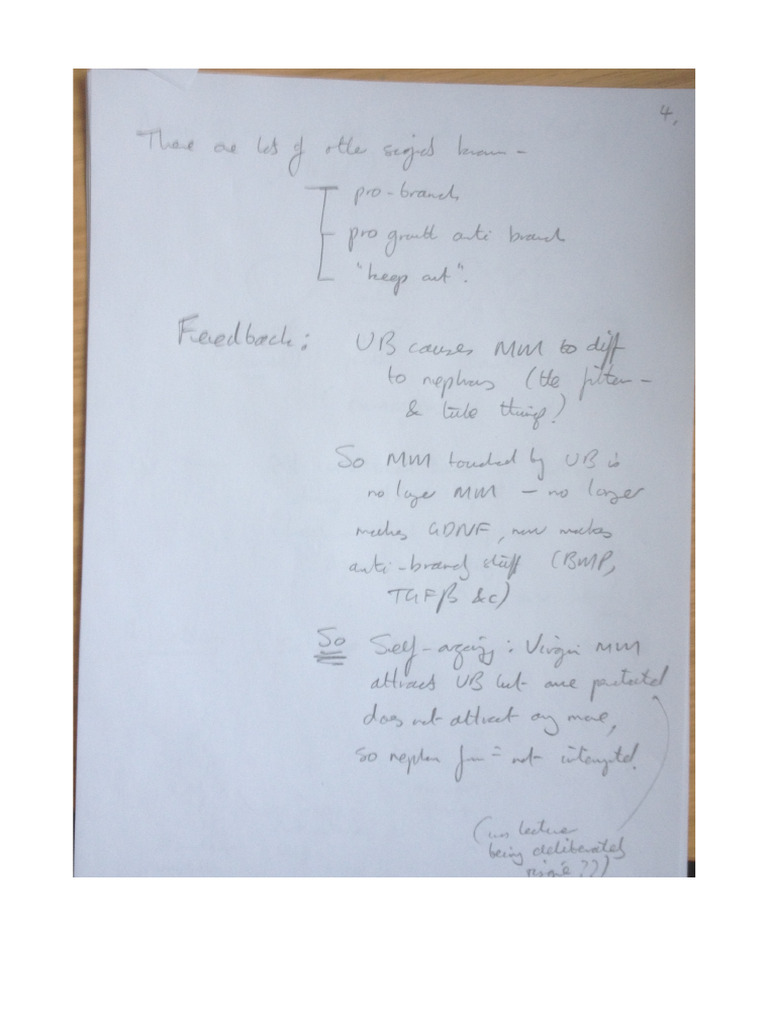 4.
There are lots of other signals known -
pro-branch
pro growth anti branch
"keep out".
Feedback: UB causes MM to diff
to nephrons (the filter -
& tube things)
So MM touched by UB is
no longer MM - no longer
makes GDNF, now makes
anti-branch stuff (BMP,
TGFβ &c)
So Self-organizing: Virgin MM
attracts UB but once penetrated
does not attract any more,
so nephron = not interrupted.
(was lecturer
being deliberately
risqué??)